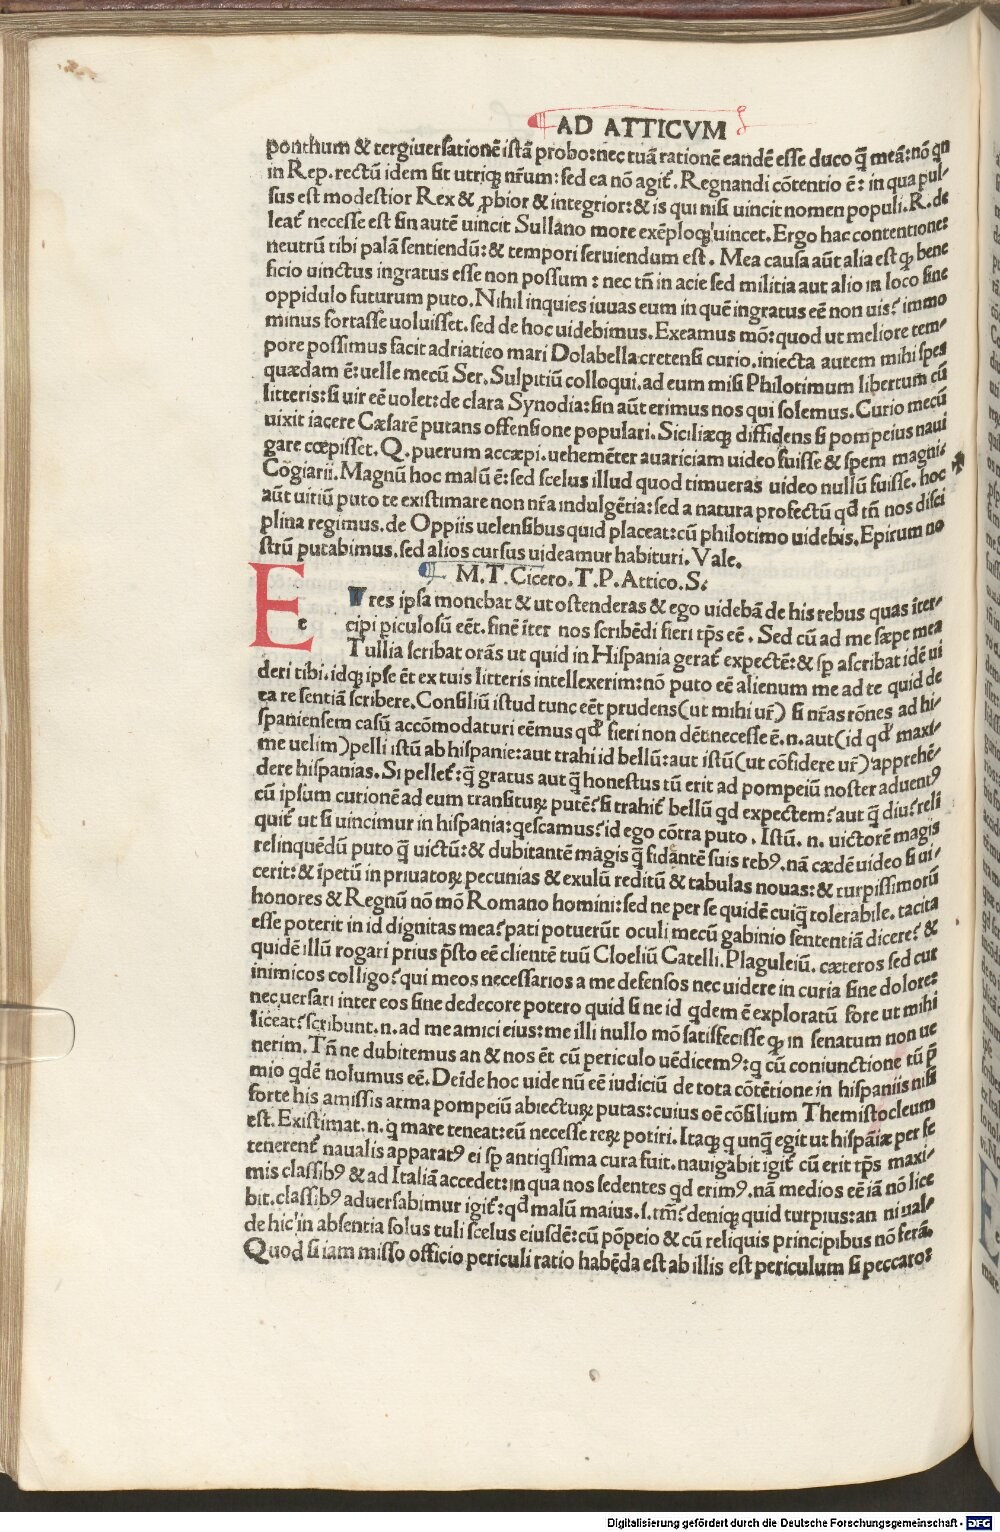 AD ATTICVM
ponthum & tergiuersationē istā probo: nec tuā rationē eandē esse duco q̄ meā: nō qn
in Rep. rectū idem sit utriqꝫ nr̄um: sed ea nō agit᷒. Regnandi cōtentio ē: in qua pul-
sus est modestior Rex & ꝓbior & integrior: & is qui nisi uincit nomen populi. R. de
leat᷒ necesse est sin autē uincit Sullano more exēploqꝫ uincet. Ergo hac contentione:
neutrū tibi palā sentiendū: & tempori seruiendum est. Mea causa aūt alia est qꝫ bene
ficio uinctus ingratus esse non possum: nec tn̄ in acie sed militia aut alio in loco sine
oppidulo futurum puto. Nihil inquies iuuas eum in quē ingratus eē non uis? immo
minus fortasse uoluisset. sed de hoc uidebimus. Exeamus mō: quod ut meliore tem-
pore possimus facit adriatico mari Dolabella cretensi curio. iniecta autem mihi spes
quædam ē: uelle mecū Ser. Sulpitiū colloqui. ad eum misi Philotimum libertum cū
litteris: si uir eē uolet: de clara Synodia: sin aūt erimus nos qui solemus. Curio mecū
uixit iacere Cæsarē putans offensione populari. Siciliæqꝫ diffidens si pompeius naui
gare cœpisset. Q. puerum accæpi. uehemēter auariciam uideo fuisse & spem magni-
Cōgiarii. Magnū hoc malū ē: sed scelus illud quod timueras uideo nullū fuisse. hoc
aūt uitiū puto te existimare non nr̄a indulgētia: sed a natura profectū qd̄ tn̄ nos disci
plina regimus. de Oppiis uelensibus quid placeat: cū philotimo uidebis. Epirum no
strū putabimus. sed alios cursus uideamur habituri. Vale.
M. T. Cicero. T. P. Attico. S.
E e T res ipsa monebat & ut ostenderas & ego uidebā de his rebus quas īter-
cipi ꝑiculosū eēt. finē īter nos scribēdi fieri tp̄s eē. Sed cū ad me sæpe mea
Tullia scribat orās ut quid in Hispania gerat᷒ expectē: & sꝑ ascribat idē ui
deri tibi. idqꝫ ipse ēt ex tuis litteris intellexerim: nō puto eē alienum me ad te quid de
ea re sentiā scribere. Consiliū istud tunc eēt prudens (ut mihi ur̄) si nr̄as rōnes ad hi-
spaniensem casū accōmodaturi eēmus qd̄ fieri non dēt: necesse ē. n. aut (id qd̄ maxi-
me uelim) pelli istū ab hispanie: aut trahi id bellū: aut istū (ut cōfidere ur̄) apprehē-
dere hispanias. Si pellet᷒: q̄ gratus aut q̄ honestus tū erit ad pompeiū noster aduentꝰ
cū ipsum curionē ad eum transiturꝫ putē? si trahit᷒ bellū qd expectem? aut q̄ diu? reli
quit᷒ ut si uincimur in hispania: qescamus? id ego cōtra puto. Istū. n. uictorē magis
relinquēdū puto q̄ uictū: & dubitantē magis q̄ fidantē suis rebꝰ. nā cædē uideo si ui-
cerit: & īpetū in priuatoꝝ pecunias & exulū reditū & tabulas nouas: & turpissimorū
honores & Regnū nō mō Romano homini: sed ne per se quidē cuiq̄ tolerabile. tacita
esse poterit in id dignitas mea? pati potuerūt oculi mecū gabinio sententiā dicere? &
quidē illū rogari prius p̄sto eē clientē tuū Cloeliū Catelli. Plaguleiū. cæteros sed cur
inimicos colligo? qui meos necessarios a me defensos nec uidere in curia sine dolore:
nec uersari inter eos sine dedecore potero quid si ne id qdem ē exploratū fore ut mihi
liceat? scribunt. n. ad me amici eius: me illi nullo mō satisfecisse qꝫ in senatum non ue
nerim. Tn̄ ne dubitemus an & nos ēt cū periculo uēdicemꝰ: q cū coniunctione tū p̄
mio qdē nolumus eē. Deīde hoc uide nū eē iudiciū de tota cōtētione in hispaniis nisi
forte his amissis arma pompeiū abiecturꝫ putas: cuius oē cōsilium Themistocleum
est. Existimat. n. q mare teneat: eū necesse rerꝫ potiri. Itaqꝫ q unq̄ egit ut hispāiæ per se
tenerent᷒ naualis apparatꝰ ei sꝑ antiqssima cura fuit. nauigabit igit᷒ cū erit tp̄s maxi-
mis classibꝰ & ad Italiā accedet: in qua nos sedentes qd erimꝰ. nā medios eē iā nō lice
bit. classibꝰ aduersabimur igit᷒: qd̄ malū maius. l. tm̄? deniqꝫ quid turpius: an ni ual-
de hic in absentia solus tuli scelus eiusdē: cū pōpeio & cū reliquis principibus nō ferā.
Quod si iam misso officio periculi ratio habęda est ab illis est periculum si peccaro:
Digitalisierung gefördert durch die Deutsche Forschungsgemeinschaft - DFG